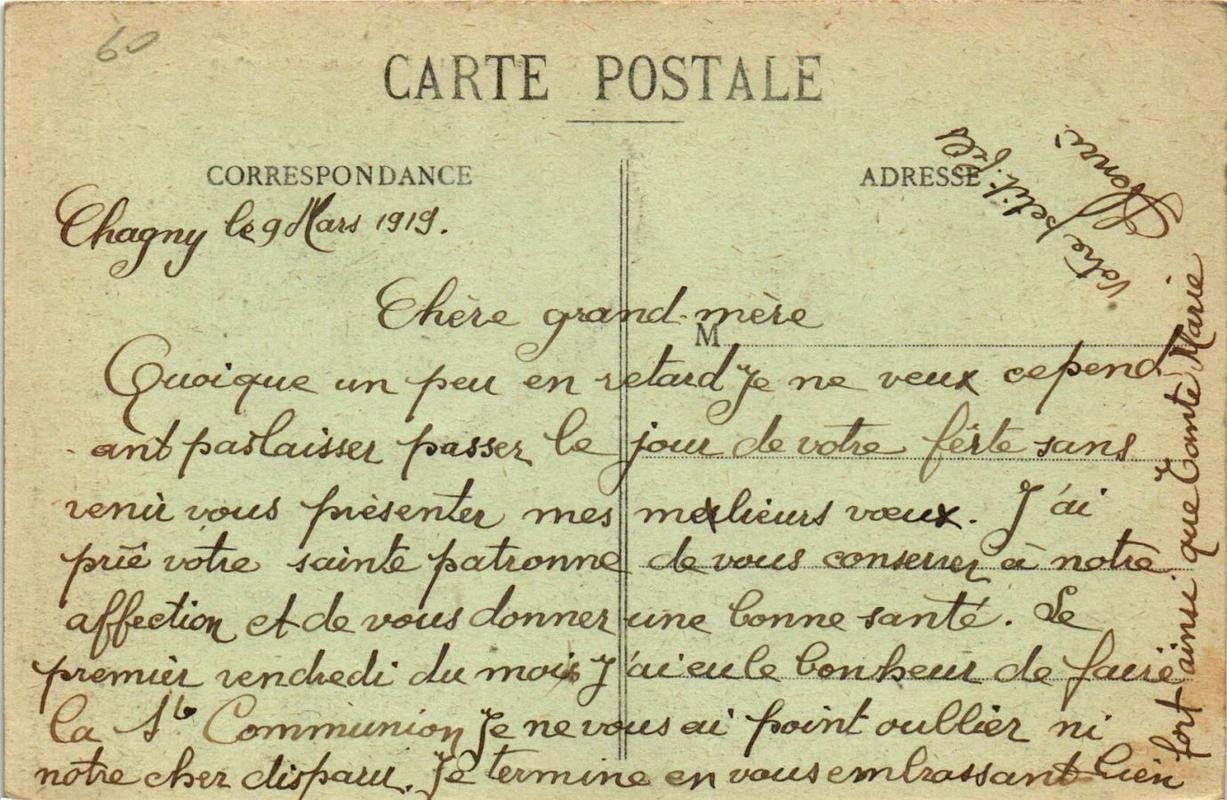 60
CARTE POSTALE
CORRESPONDANCE
ADRESSE
Chagny le 9 Mars 1919.
Chère grand-mère
M
Quoique un peu en retard Je ne veux cepend
ant pas laisser passer le jour de votre fêrte sans
venir vous présenter mes meilieurs vœux. J'ai
prié votre sainte patronne de vous conserver à notre
affection et de vous donner une bonne santé. Le
premier vendredi du mois J'ai eu le bonheur de faire
la Ste Communion Je ne vous ai point oublier ni
notre cher disparu. Je termine en vous embrassant bien
fort ainsi que Tante Marie
Votre petit-fils
Henri.